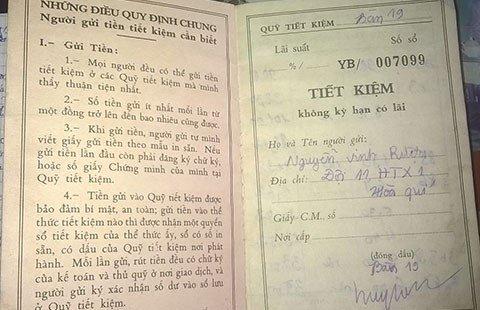 NHỮNG ĐIỀU QUY ĐỊNH CHUNG
Người gửi tiền tiết kiệm cần biết
I.— Gửi Tiền:
1.— Mọi người đều có thể gửi tiền
tiết kiệm ở các Quỹ tiết kiệm mà mình
thấy thuận tiện nhất.
2.— Số tiền gửi ít nhất mỗi lần từ
một đồng trở lên đến bao nhiêu cũng được.
3.— Khi gửi tiền, người gửi tự mình
viết giấy gửi tiền theo mẫu in sẵn. Nếu
gửi tiền lần đầu còn phải đăng ký chữ ký,
hoặc số giấy Chứng minh của mình tại
Quỹ tiết kiệm.
4.— Tiền gửi vào Quỹ tiết kiệm được
bảo đảm bí mật, an toàn; gửi tiền vào thể
thức tiết kiệm nào thì được nhận một quyển
sổ tiết kiệm của thể thức ấy, sổ có số in
sẵn, có dấu của Quỹ tiết kiệm nơi phát
hành. Mỗi lần gửi, rút tiền đều có chữ ký
của kế toán và thủ quỹ ở nơi giao dịch, và
người gửi ký xác nhận số dư vào sổ lưu
ở Quỹ tiết kiệm.
QUỸ TIẾT KIỆM Bàn 19
Lãi suất Số sổ
%/ YB/ 007099
TIẾT KIỆM
không kỳ hạn có lãi
Họ và Tên người gửi:
Nguyễn
Địa chỉ: Đội 11 HTX1
Hòa quí
Giấy C.M. số
Nơi cấp
(đóng dấu)
Bàn 19